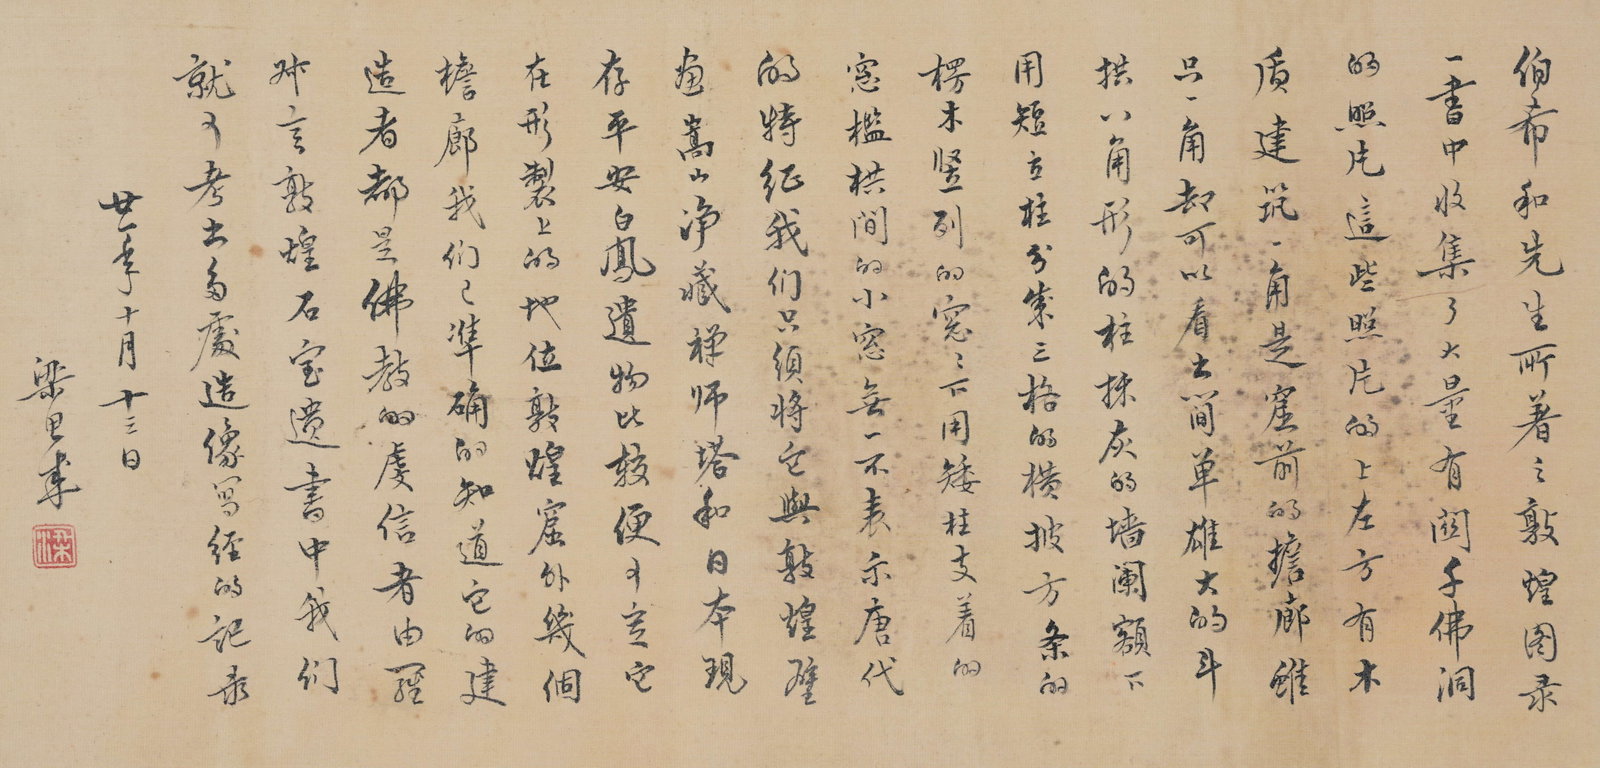 伯希和先生所著之敦煌图录
一書中收集了大量有関千佛洞
的照片這些照片的上左方有木
质建筑一角是窟前的擔廊雖
只一角却可以看出简单雄大的斗
拱八角形的柱抹灰的墙阑额下
用短立柱分策三格的横披方条的
楞木竖列的窓之下用矮柱支着的
窓槛栱間的小窓無一不表示唐代
的特征我们只須将它與敦煌壁
画嵩山净藏禅师塔和日本現
存平安白鳳遺物比较便可定它
在形製上的地位敦煌窟外幾個
檐廊我们已準确的知道它的建
造者都是佛教的虔信者由羅
叔言敦煌石室遺書中我们
就可考出多處造像寫经的記录
廿一年十月十三日
梁思成
梁